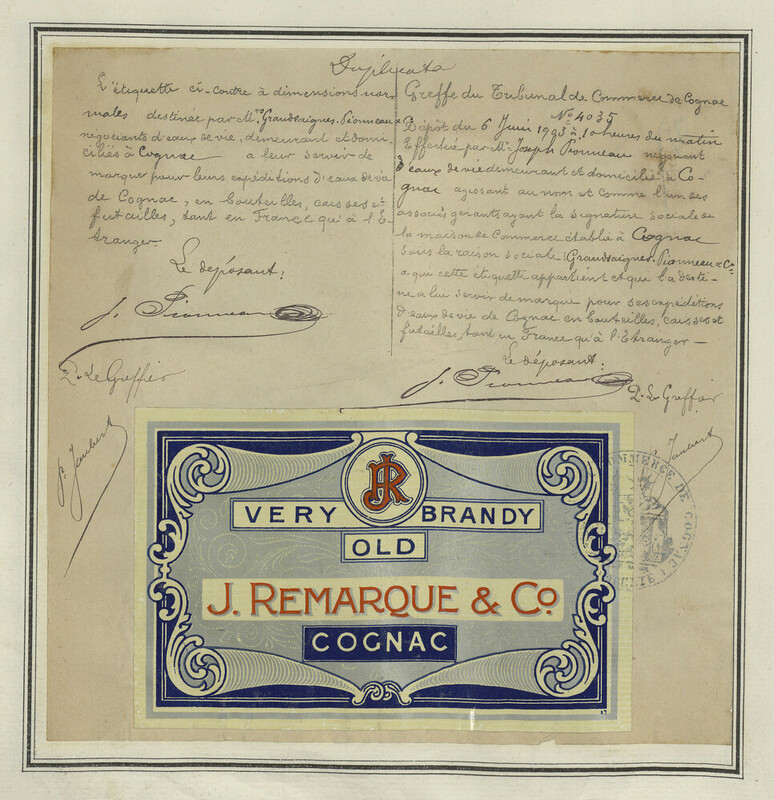 Duplicata
L'étiquette ci-contre à dimensions nor
males destinée par Mrs Grandsaignes, Pionneau & Co
négociants d'eaux de vie, demeurant et domi
ciliés à Cognac a leur servir de
marque pour leurs expéditions d'eaux de vie
de Cognac, en bouteilles, caisses et
futailles, tant en France qu'à l'E-
tranger
Le déposant:
J. Pionneau
P. Le Greffier
P. Jaubert
Greffe du Tribunal de Commerce de Cognac
No 4035
Dépôt du 6 Juin 1903 à 10 heures du matin
Effectué par Mr Joseph Pionneau négociant
d'eaux de vie demeurant et domicilié à Co-
gnac agissant au nom et comme l'un des
associés gérants ayant la signature sociale de
la maison de Commerce établie à Cognac
sous la raison sociale: Grandsaignes, Pionneau & Co
a qui cette étiquette appartient et qui la desti-
ne a lui servir de marque pour ses expéditions
d'eaux de vie de Cognac en bouteilles, caisses et
futailles, tant en France qu'à l'Etranger —
Le déposant:
J. Pionneau
P. Le Greffier
Jaubert
JR
VERY BRANDY
OLD
J. REMARQUE & Co
COGNAC
COMMERCE DE COGNAC